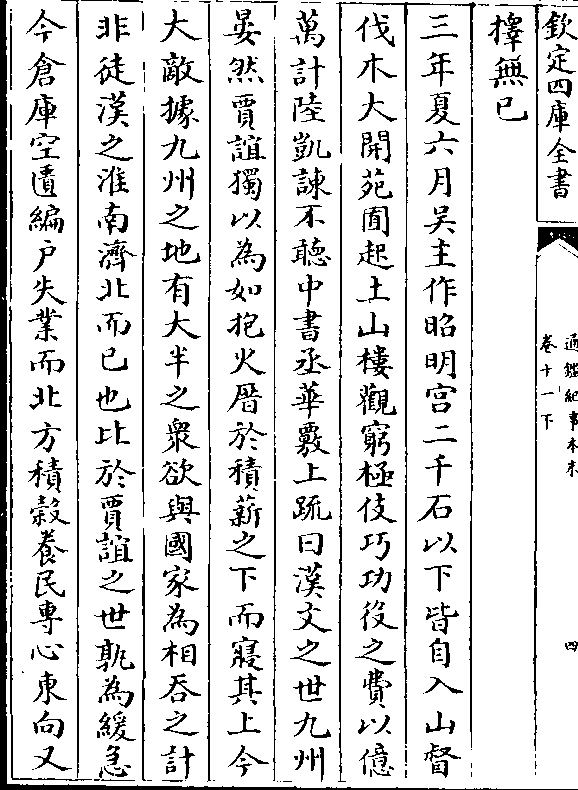 欽定四庫全書
通鑑紀事本末
卷十一下
四
擇無已
三年夏六月吳主作昭明宫二千石以下皆自入山督
伐木大開苑囿起土山樓觀窮極伎巧功役之費以億
萬計陸凱諫不聽中書丞華覈上疏曰漢文之世九州
晏然賈誼獨以為如抱火厝於積薪之下而寢其上今
大敵據九州之地有大半之衆欲與國家為相吞之計
非徒漢之淮南濟北而已也比於賈誼之世孰為緩急
今倉庫空匱編户失業而北方積穀養民專心東向又